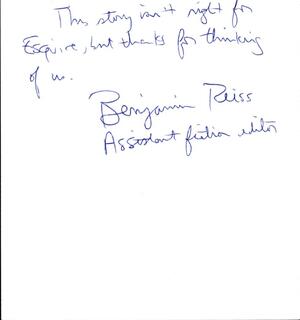 This story isn't right for
Esquire, but thanks for thinking
of us.
Benjamin Reiss
Assistant fiction editor